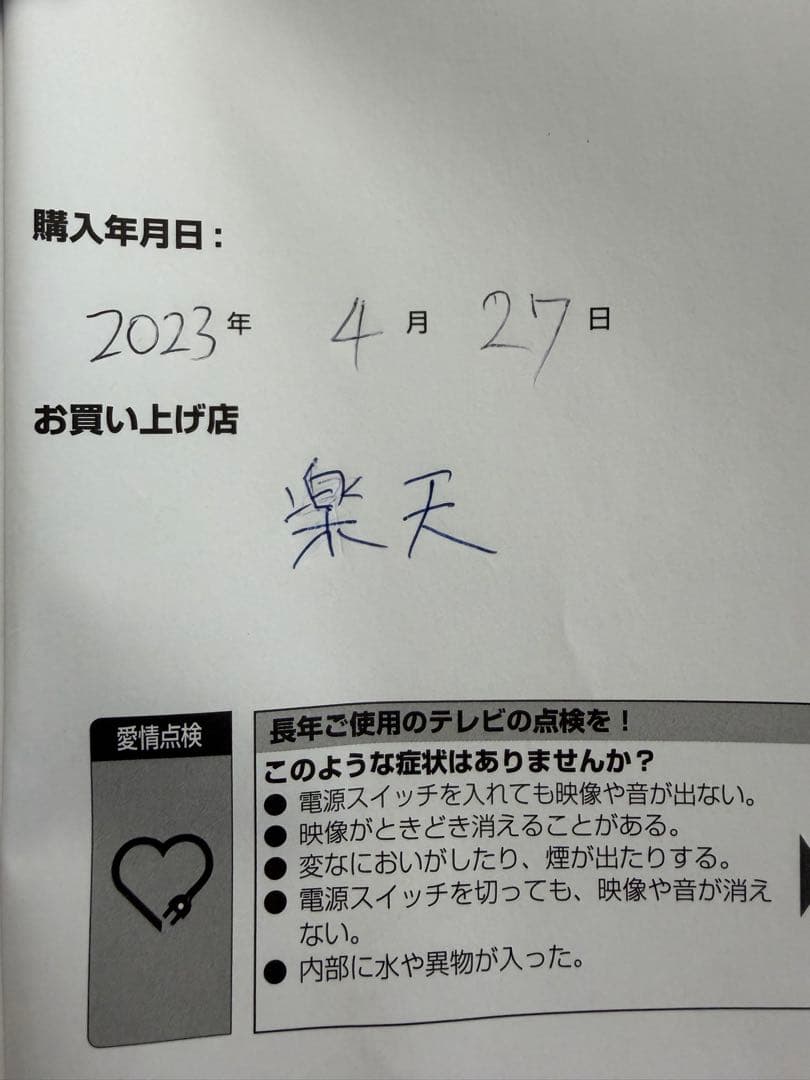 購入年月日：
2023年 4月 27日
お買い上げ店
楽天
愛情点検
長年ご使用のテレビの点検を！
このような症状はありませんか？
● 電源スイッチを入れても映像や音が出ない。
● 映像がときどき消えることがある。
● 変なにおいがしたり、煙が出たりする。
● 電源スイッチを切っても、映像や音が消え
ない。
● 内部に水や異物が入った。